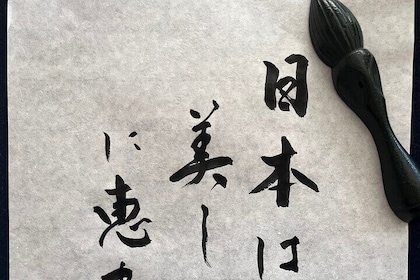 日本は
美し
に恵